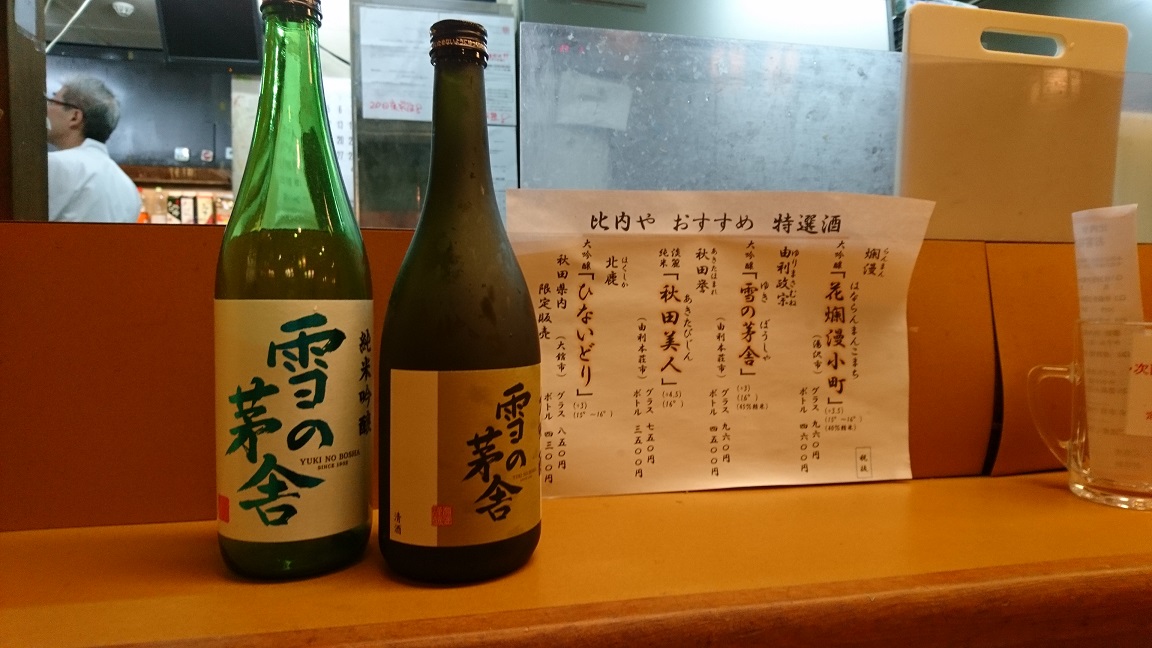 純米吟醸
雪の
茅舎
YUKI NO BOSHA
SINCE 1902
雪の
茅舎
清酒
比内や おすすめ 特選酒
爛漫
らんまん
大吟醸「花爛漫小町」
はならんまんこまち
(湯沢市)
グラス 九六〇円
ボトル 四六〇〇円
由利政宗
ゆりまさむね
大吟醸「雪の茅舎」
ゆき ぼうしゃ
(由利本荘市)
グラス 九六〇円
ボトル 四五〇〇円
秋田誉
あきたほまれ
淡麗
純米「秋田美人」
あきたびじん
(由利本荘市)
グラス 七五〇円
ボトル 三五〇〇円
北鹿
ほくしか
大吟醸「ひないどり」
(大舘市)
グラス 八五〇円
ボトル 四三〇〇円
秋田県内
限定販売
税抜